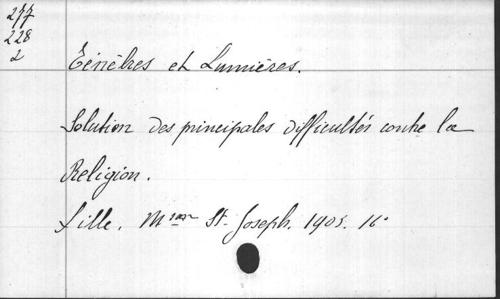 277
228
2
Ténèbres et Lumières.
Solution des principales difficultés contre la
Religion.
Lille. Mson St-Joseph. 1905. 16°